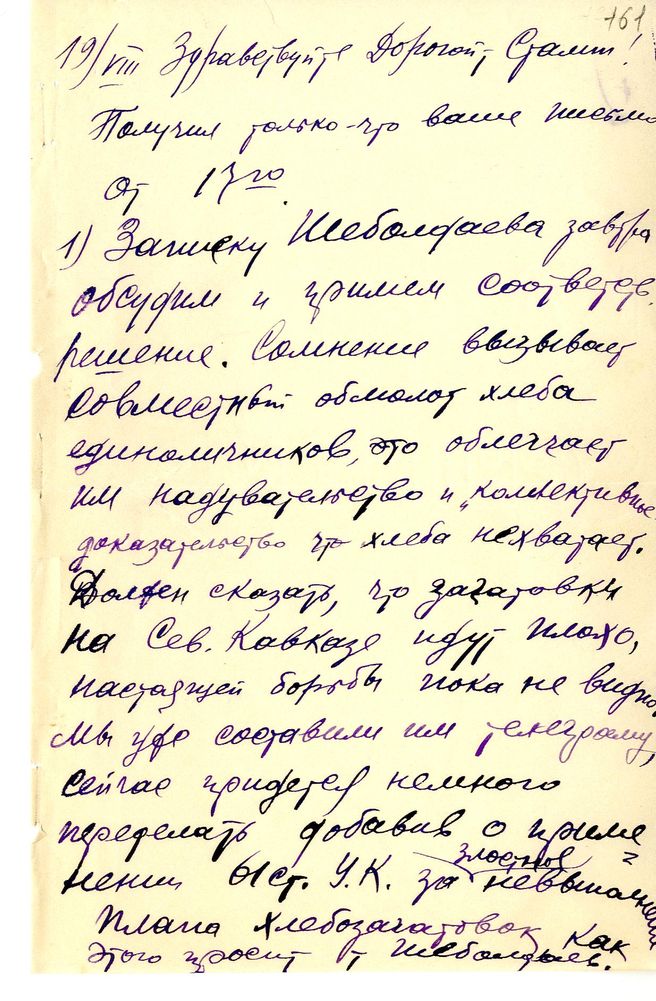 161
19/VIII Здравствуйте Дорогой, Сталин!
Получил только-что ваше письмо
от 17го.
1) Записку Шеболдаева завтра
обсудим и примем соответств.
решение. Сомнение ввызывает
совместный обмолот хлеба
единоличников, это облегчает
им надувательство и „коллективные
доказательство что хлеба нехватает.
Должен сказать, что заготовки
на Сев. Кавказе идут плохо,
настоящей борьбы пока не видно.
Мы уже составили им телеграму,
сейчас придется немного
переделать добавив о приме=
нении 61 ст. У.К. за злостное невыполнение
плана хлебозаготовок, как
этого просит т Шеболдаев.